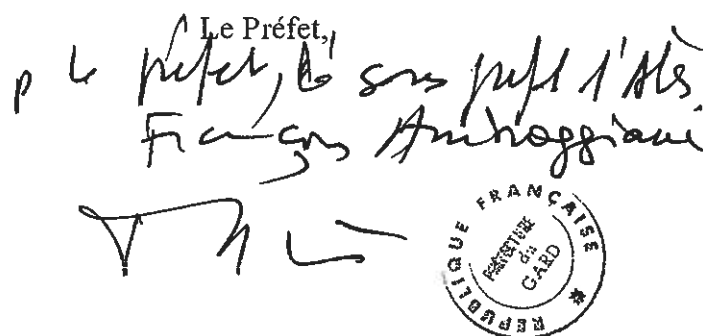 Le Préfet,
p le préfet, le sous préfet d'Alès
François Ambroggiani
RÉPUBLIQUE FRANÇAISE
PRÉFECTURE
du
GARD